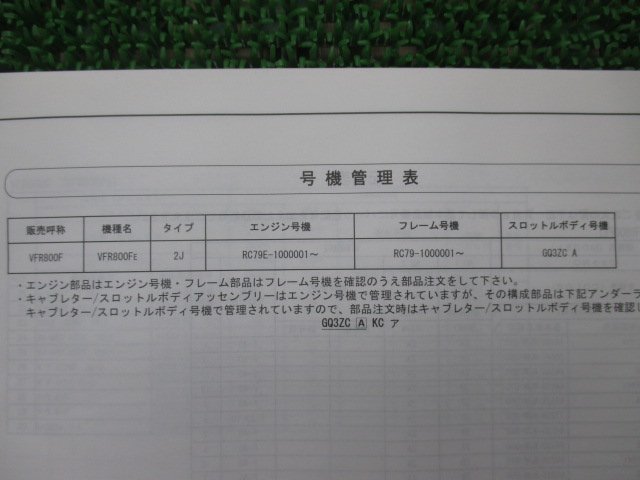 号機管理表
販売呼称 機種名 タイプ エンジン号機 フレーム号機 スロットルボディ号機
VFR800F VFR800FE 2J RC79E-1000001～ RC79-1000001～ GQ3ZC A
・エンジン部品はエンジン号機・フレーム部品はフレーム号機を確認のうえ部品注文をして下さい。
・キャブレター/スロットルボディアッセンブリーはエンジン号機で管理されていますが、その構成部品は下記アンダーラ
キャブレター/スロットルボディ号機で管理されていますので、部品注文時はキャブレター/スロットルボディ号機を確認し
GQ3ZC A KC ア